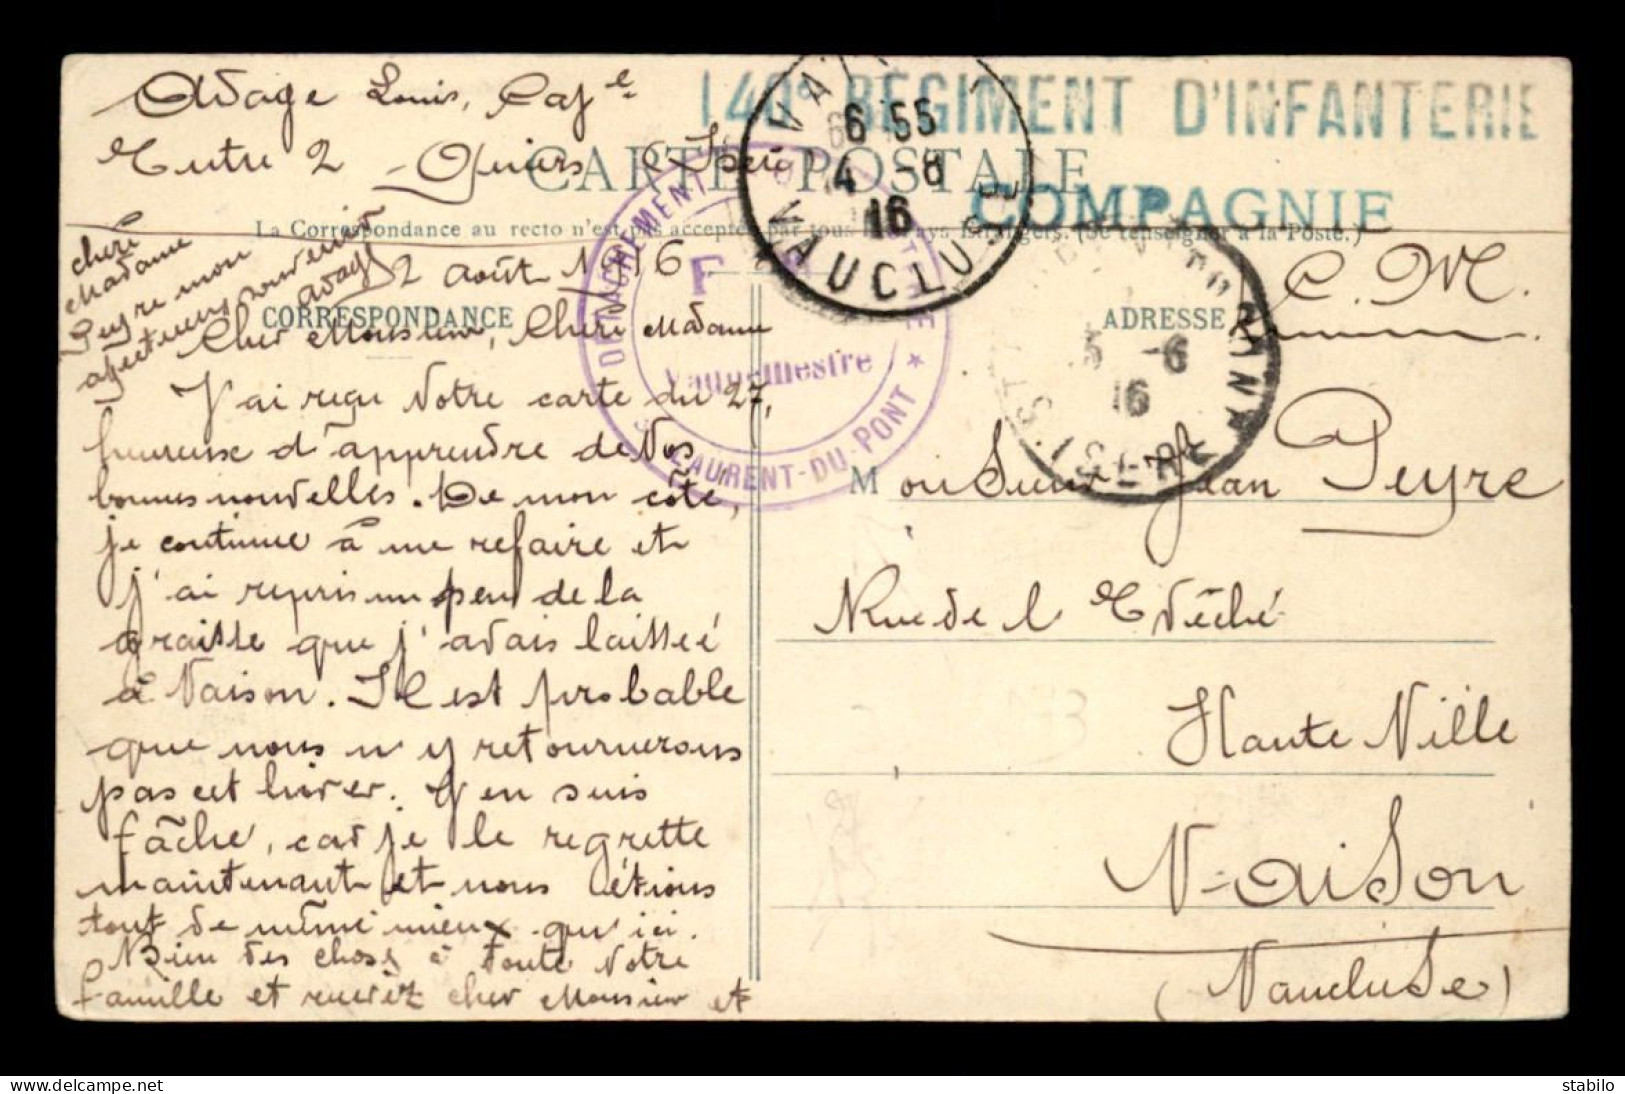 140e REGIMENT D'INFANTERIE
COMPAGNIE
Louis, Cap el
2
CARTE POSTALE
La Correspondance au recto n'est pas acceptée par tous les pays Etrangers. (Se renseigner à la Poste.)
VAUCLUSE
6 55
4 -8
16
DETACHEMENT
F
Vaguemestre
LAURENT-DU-PONT *
5 -6
16
ISERE
2 août 1916
CORRESPONDANCE
ADRESSE
F. M.
Cher Monsieur, Chère Madame
J'ai reçu votre carte du 27,
heureux d'apprendre de vos
bonnes nouvelles. De mon côté,
je continue à me refaire et
j'ai repris un peu de la
graisse que j'avais laissée
à Vaison. Il est probable
que nous n'y retournerons
pas cet hiver. J'en suis
fâché, car je le regrette
maintenant et nous étions
tout de même mieux qu'ici.
Bien des choses à toute votre
famille et recevez cher Monsieur et
chère
Madame
Peyre mon
affectueux souvenir
Monsieur Jean Peyre
Rue de l'Evêché
Haute Ville
Vaison
(Vaucluse)
stabilo